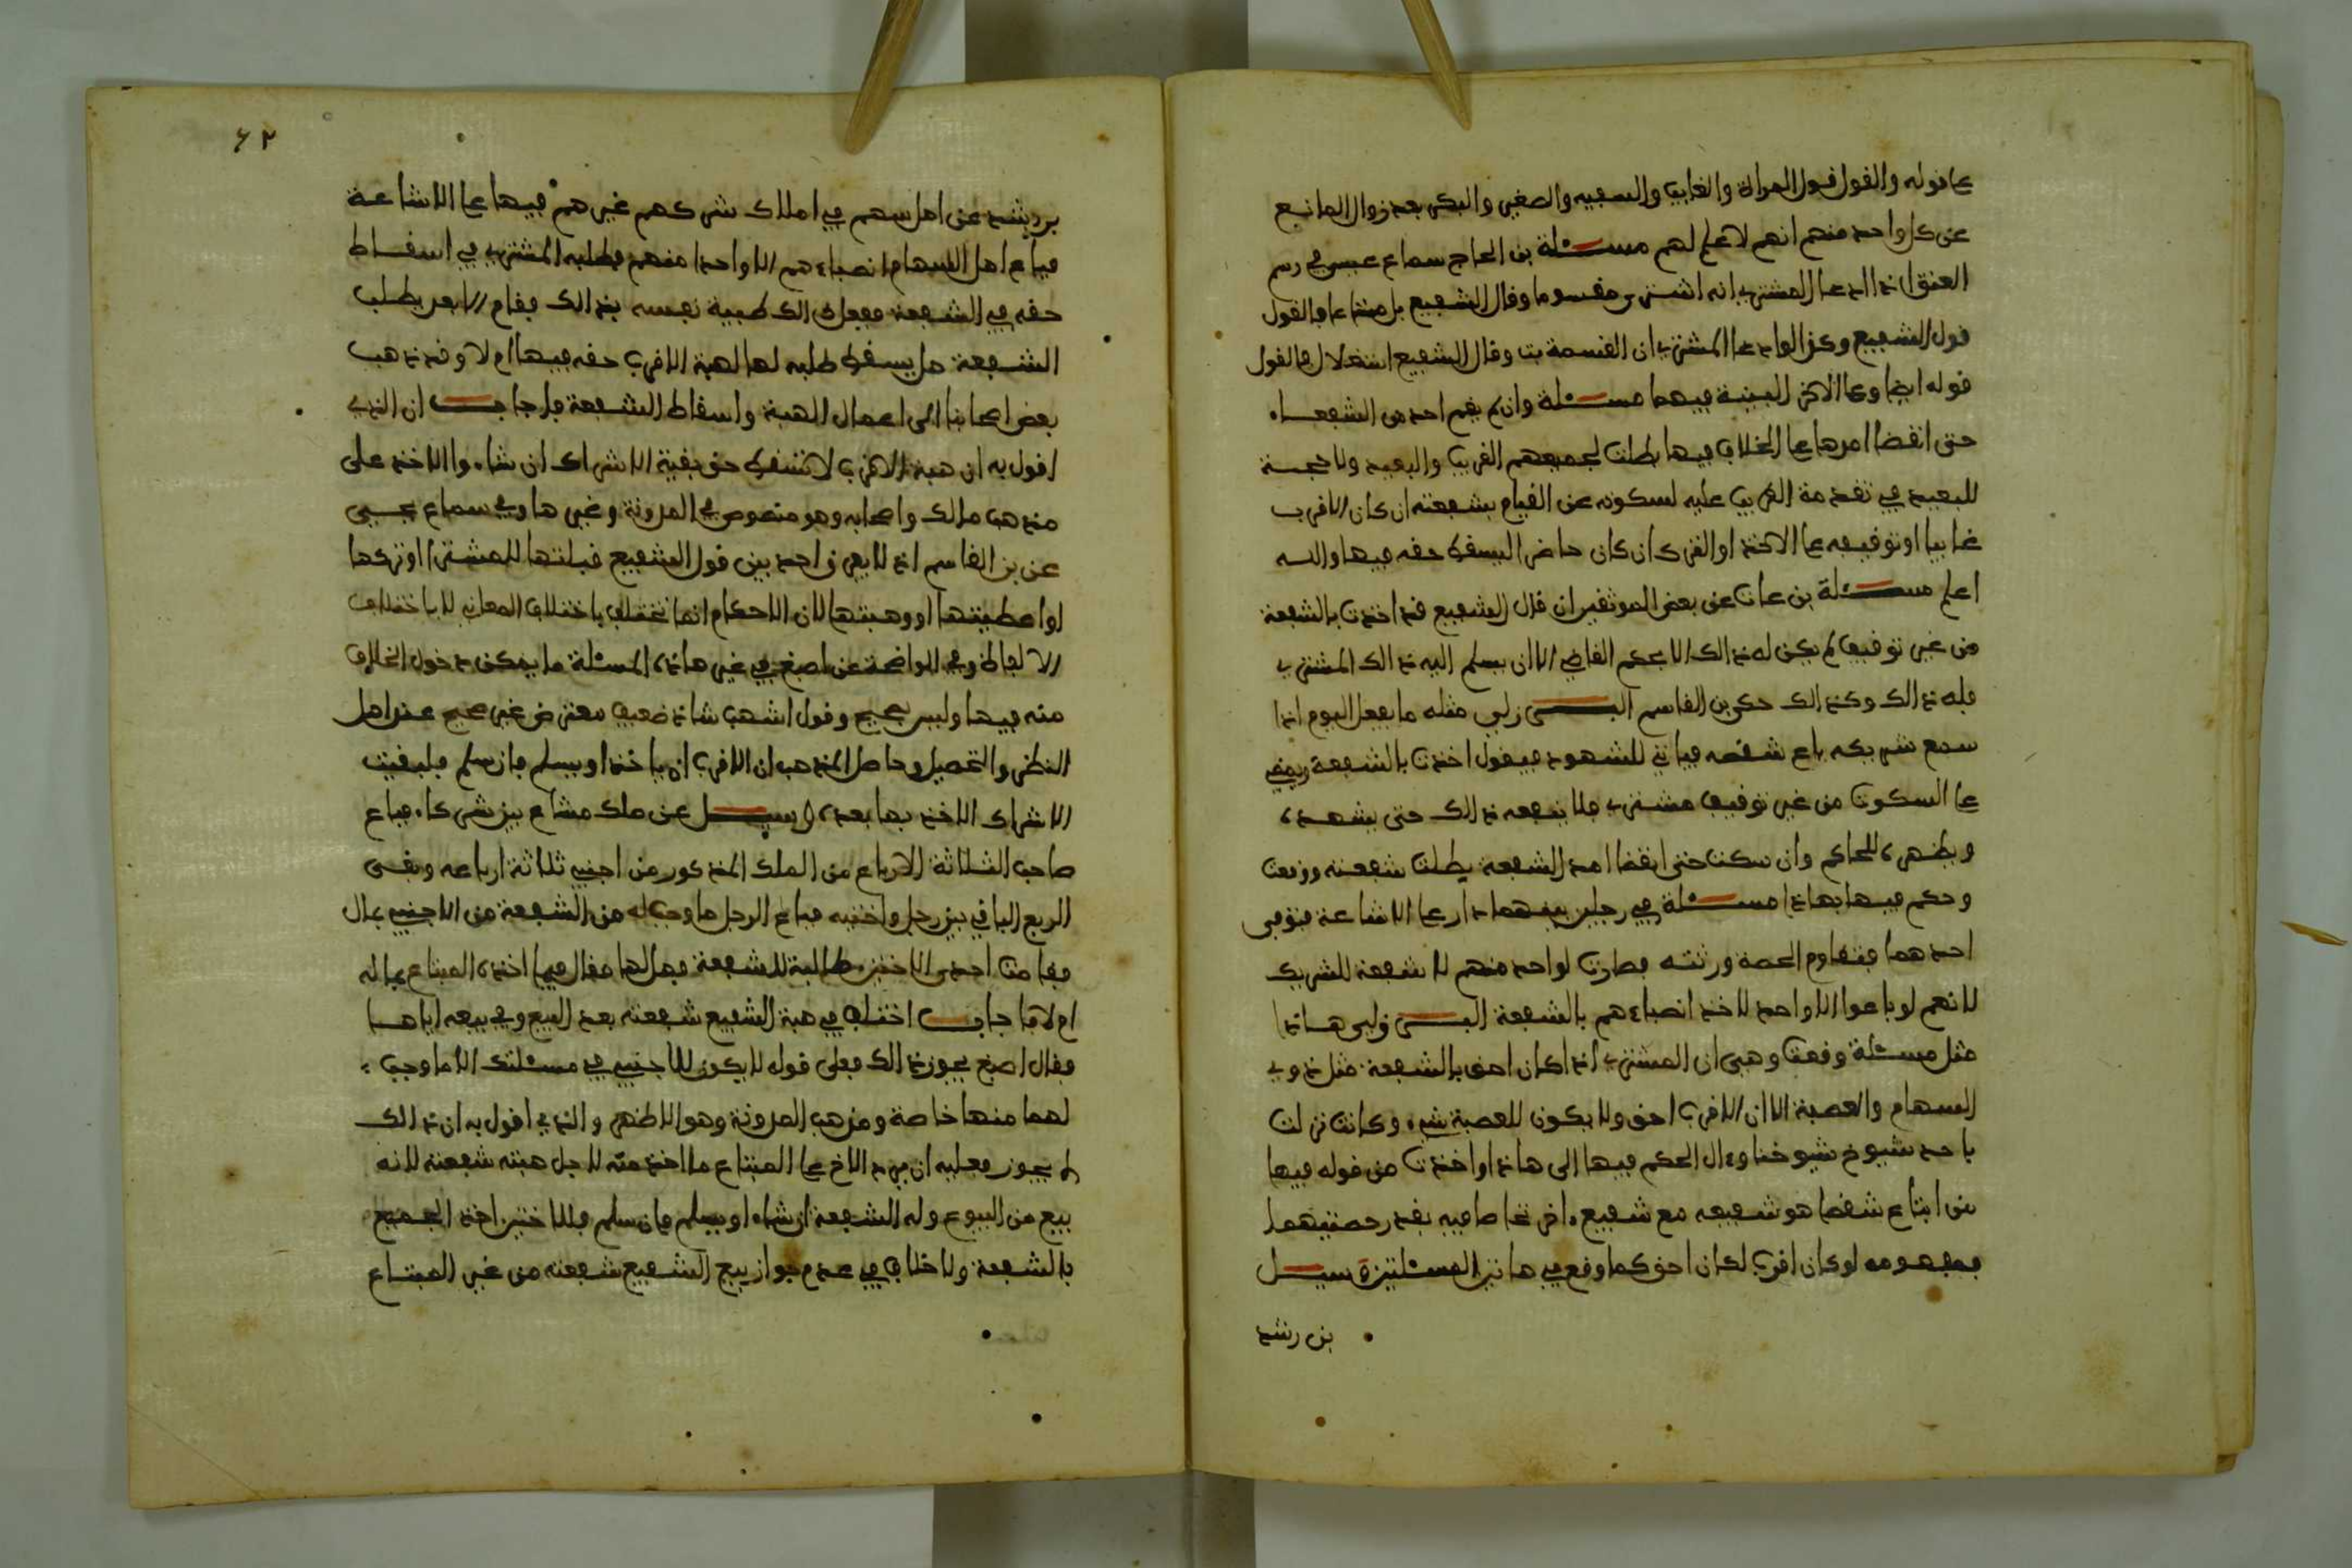 على قوله والقول قول المراة والغايب والسفيه والصغير والبكر بعد زوال المانع
عن كل واحد منهم انهم لا علم لهم مسئلة بن الحاج سماع عيسى في رسم
العتق اذا ادعا المشتري انه اشترى مقسوما وقال الشفيع بل مشاعا فالقول
قول الشفيع وكذا لو ادعا المشتري ان القسمة بت وقال الشفيع استغلال فالقول
قوله ايضا وعلى الاخر البينة فيهما مسئلة وان لم يقم احد من الشفعاء
حتى انقضا امدها على الخلاف فيها بطلت لجميعهم القريب والبعيد ولا حجة
للبعيد في تقدمة القريب عليه لسكوته عن القيام بشفعته ان كان الاقرب
غايبا او توقيفه على الاخذ او الترك ان كان حاضرا ليسقط حقه فيها والله
اعلم مسئلة بن عات عن بعض الموثقين ان قال الشفيع قد اخذت بالشفعة
من غير توقيف لم يكن له ذالك الا بحكم القاضي الا ان يسلم اليه ذالك المشتري
فله ذالك وكذالك حكى بن القاسم البرزلي مثله ما يفعل اليوم اذا
سمع شريكه باع شقصه فياتي للشهود فيقول اخذت بالشفعة
على السكوت من غير توقيف مشتري فلا ينفعه ذالك حتى يشهده
ويظهره للحاكم وان سكت حتى انقضا امد الشفعة بطلت شفعته ووقعت
وحكم فيها بهاذا مسئلة في رجلين بينهما دار على الاشاعة فتوفى
احدهما فتقاوم الحصة ورثته فصارت لواحد منهم لا شفعة للشريك
لانهم لو باعوا الا واحد لاخذ انصباءهم بالشفعة البرزلى هاذا
مثل مسئلة وقعت وهى ان المشتري اذا كان احق بالشفعة مثل ذوي
السهام والعصبة الا ان الاقرب احق ولا يكون للعصبة شيء وكانت نزلت
باحد شيوخ شيوخنا وءال الحكم فيها الى هاذا واخذت من قوله فيها
من ابتاع شقصا هو شفيعه مع شفيع ءاخر تحاصا فيه بقدر حصتيهما
فمفهومه لو كان اقرب لكان احق كما وقع في هاتين المسئلتين سيل
بن رشد
٦٢
بن رشد عن اهل سهم في املاك شركهم غيرهم فيها على الاشاعة
فباع اهل السهام انصباءهم الا واحدا منهم فطلبه المشتري في اسقاط
حقه في الشفعة ففعل ذالك طيبة نفسه بذالك فقام الابعد يطلب
الشفعة هل يسقط طلبه لها لهبة الاقرب حقه فيها ام لا وقد ذهب
بعض اصحابنا الى اعمال الهبة واسقاط الشفعة فاجاب ان الذي
اقول به ان هبة الاقرب لا تسقط حق بقية الاشراك ان شاءوا الاخذ على
مذهب مالك واصحابه وهو منصوص في المدونة وغيرها وفي سماع يحيى
عن بن القاسم اذ لا يفرق احد بين قول الشفيع قبلتها للمشترى او تركتها
او اعطيتها او وهبتها لان الاحكام انما تختلف باختلاف المعاني لا باختلاف
الالفاظ وفي الواضحة عن اصبغ في غير هاذه المسئلة ما يمكن دخول الخلاف
منه فيها وليس بصحيح وقول اشهب شاذ ضعيف معترض غير صحيح عند اهل
النظر والتحصيل وحاصل المذهب ان الاقرب ان ياخذ او يسلم فان سلم فلبقيت
الاشراك الاخذ بها بعده وسيل عن ملك مشاع بين شركاء فباع
صاحب الثلاثة الارباع من الملك المذكور من اجنبي ثلاثة ارباعه وبقى
الربع الباقي بين رجل واختيه فباع الرجل ما وجب له من الشفعة من الاجنبي بمال
فقامت احدى الاختين طالبة للشفعة فهل لها مقال فيما اخذه المبتاع بماله
ام لا فاجاب اختلف في هبة الشفيع شفعته بعد البيع وفي بيعه اياها
فقال اصبغ يجوز ذالك فعلى قوله لا يكون للاجنبي في مسئلتك الا ما وجب
لهما منها خاصة ومذهب المدونة وهو الاظهر والذي اقول به ان ذالك
لا يجوز فعليه ان يرد الاخ على المبتاع ما اخذ منه لاجل هبته شفعته لانه
بيع من البيوع وله الشفعة ان شاء او يسلم فان سلم فللاختين اخذ الجميع
بالشفعة ولا خلاف في عدم جواز بيع الشفيع شفعته من غير المبتاع